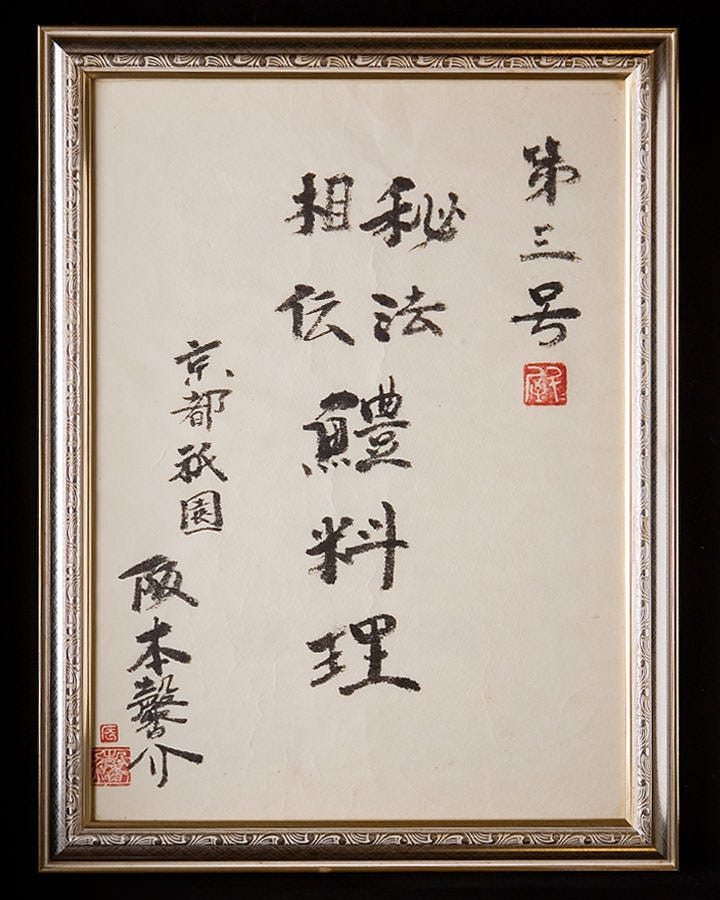 第三号
秘法
相伝
鱧料理
京都祇園
阪本馨介